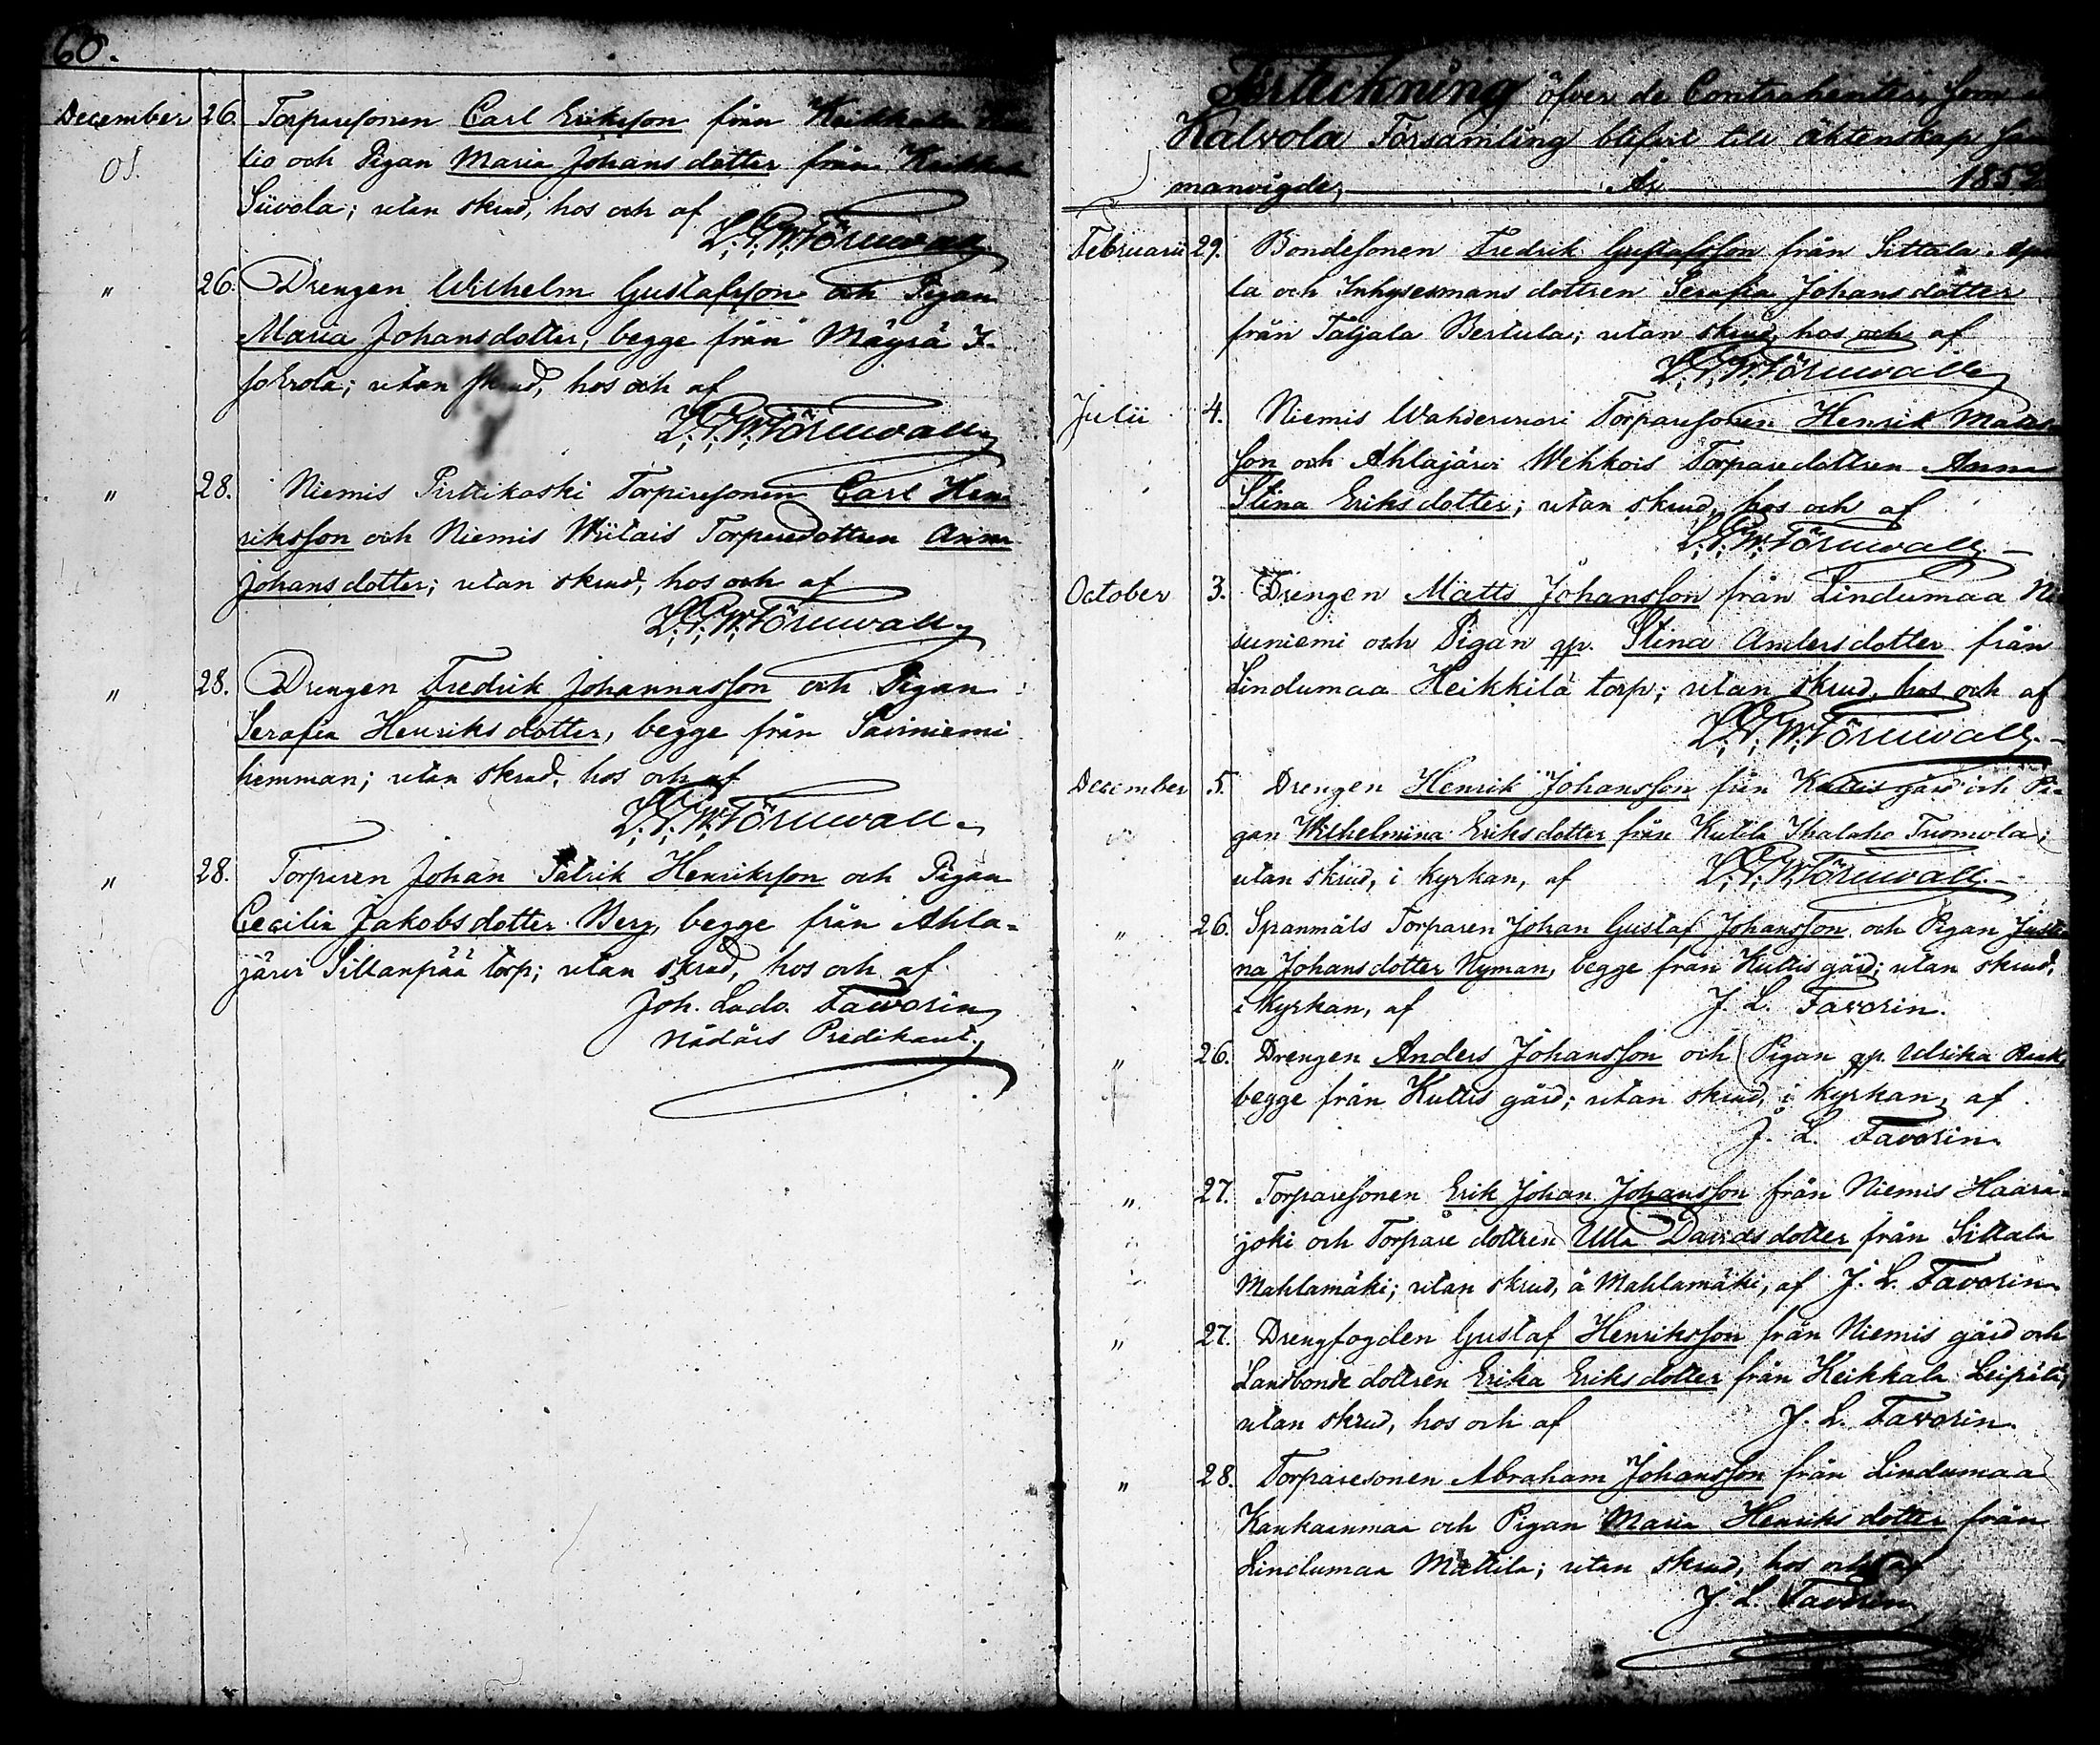 60.
December 26. Torparesonen Carl Eriksson från Keikkala
lio och Pigan Maria Johansdotter från Keikkala
Siivola; utan skrud, hos och af
L. T. W. Törnwall
" 26. Drengen Wilhelm Gustafsson och Pigan
Maria Johansdotter, begge från Mäyrä I-
so Erola; utan skrud, hos och af
L. T. W. Törnwall
" 28. Niemis Pirttikoski Torparesonen Carl Hen-
riksson och Niemis Wiitais Torparedottren Anna
Johansdotter; utan skrud, hos och af
L. T. W. Törnwall
" 28. Drengen Fredrik Johannasson och Pigan
Serafia Henriksdotter, begge från Sairiniemi
hemman; utan skrud, hos och af
L. T. W. Törnwall
" 28. Torparen Johan Patrik Henriksson och Pigan
Cecilia Jakobsdotter Berg, begge från Ahla-
järvi Sillanpää torp; utan skrud, hos och af
Joh. Ludv. Favorin
Nådårs Predikant.
Förteckning öfver de Contrahenter, som
Kalvola Församling blifvit till äktenskap sam
manvigde, År 1852
Februarii 29. Bondesonen Fredrik Gustafsson från Sittala
la och Inhysesmans dottren Serafia Johansdotter
från Taljala Bertula; utan skrud, hos och af
L. T. W. Törnwall
Julii 4. Niemis Wahdervuori Torparesonen Henrik Matts-
son och Ahlajärvi Wehkois Torparedottren Anna
Stina Eriksdotter; utan skrud, hos och af
L. T. W. Törnwall
October 3. Drengen Matts Johansson från Lindumaa
suniemi och Pigan qp. Stina Andersdotter från
Lindumaa Heikkilä torp; utan skrud, hos och af
L. T. W. Törnwall
December 5. Drengen Henrik Johansson från Kuttis gård och Pi-
gan Wilhelmina Eriksdotter från Kutila Ihalaho Tuomola;
utan skrud, i kyrkan, af L. T. W. Törnwall
" 26. Spanmåls Torparen Johan Gustaf Johansson och Pigan Justi
na Johansdotter Nyman, begge från Kuttis gård; utan skrud,
i kyrkan, af J. L. Favorin.
" 26. Drengen Anders Johansson och Pigan qp. Ulrika
begge från Kuttis gård; utan skrud, i kyrkan, af
J. L. Favorin
" 27. Torparesonen Erik Johan Johansson från Niemis Haara-
joki och Torpare dottren Ulla Davidsdotter från Sittala
Mahlamäki; utan skrud, å Mahlamäki, af J. L. Favorin
" 27. Drengfogden Gustaf Henriksson från Niemis gård och
Landbonde dottren Erika Eriksdotter från Keikkala Leipälä,
utan skrud, hos och af J. L. Favorin
" 28. Torparesonen Abraham Johansson från Lindumaa
Kankaanmaa och Pigan Maria Henriksdotter från
Lindumaa Mattila; utan skrud, hos och af
J. L. Favorin